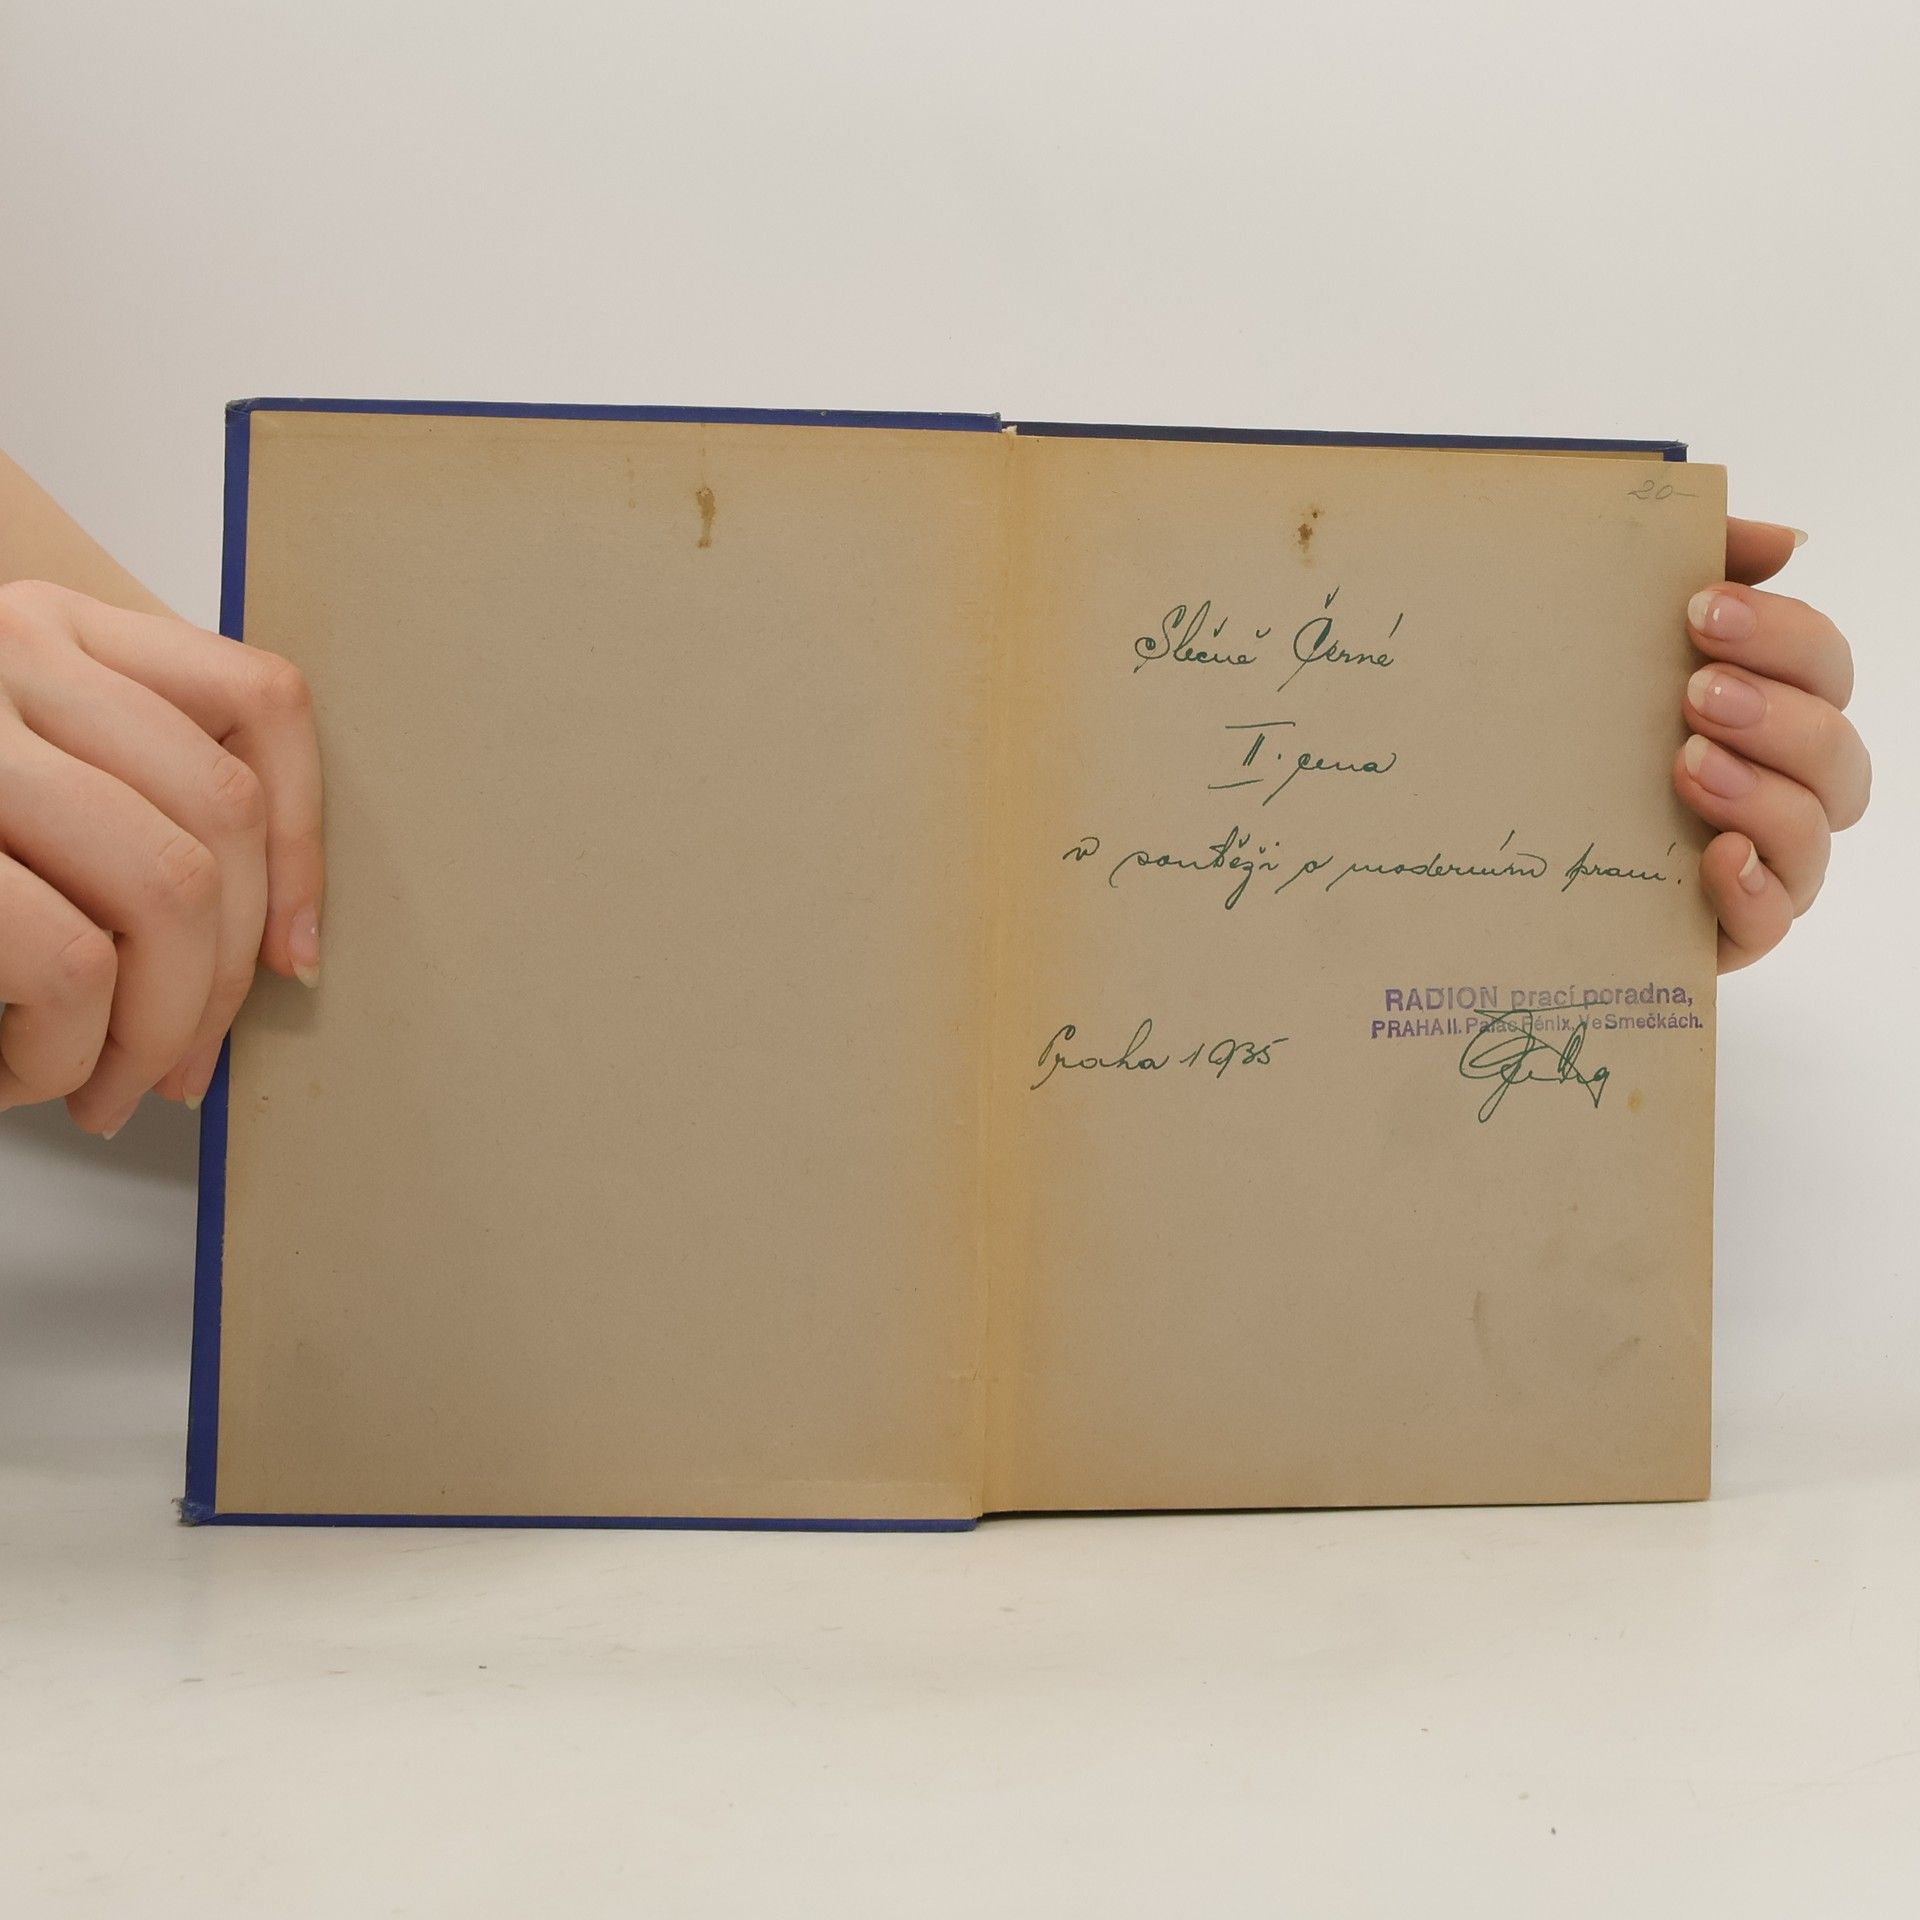 20–
Slečně Černé
II. cena
v soutěži o moderním praní.
RADION prací poradna,
PRAHA II. Palác Fénix, Ve Smečkách.
Praha 1935